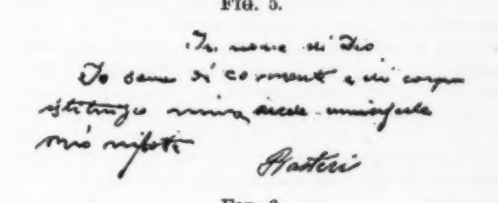 FIG. 5.
In nome di Dio
Io sano di cormente e di corpu
istituisco mia erede universale
mio nipote
FIG. 6.